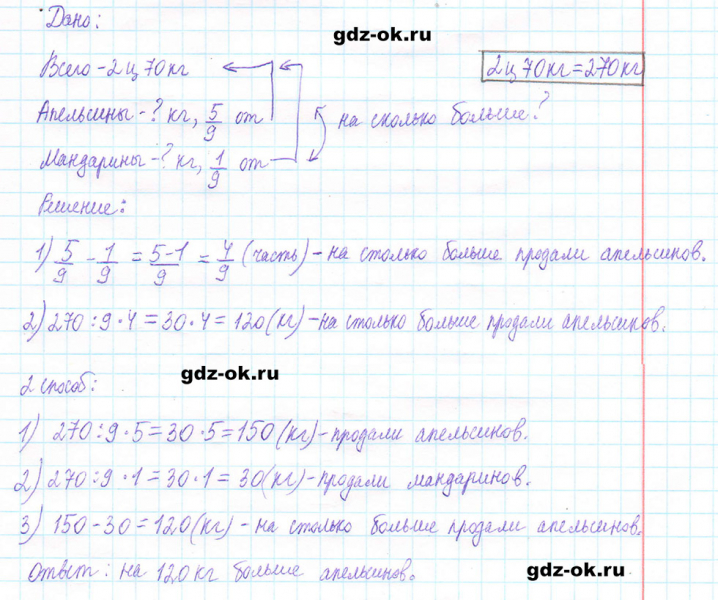 Дано:
gdz-ok.ru
Всего - 2 ц 70 кг
2 ц 70 кг = 270 кг
Апельсины - ? кг, 5/9 от
на сколько больше?
Мандарины - ? кг, 1/9 от
Решение:
1) 5/9 - 1/9 = (5-1)/9 = 4/9 (часть) - на столько больше продали апельсинов.
2) 270 : 9 · 4 = 30 · 4 = 120 (кг) - на столько больше продали апельсинов.
gdz-ok.ru
2 способ:
1) 270 : 9 · 5 = 30 · 5 = 150 (кг) - продали апельсинов.
2) 270 : 9 · 1 = 30 · 1 = 30 (кг) - продали мандаринов.
3) 150 - 30 = 120 (кг) - на столько больше продали апельсинов.
Ответ: на 120 кг больше апельсинов.
gdz-ok.ru